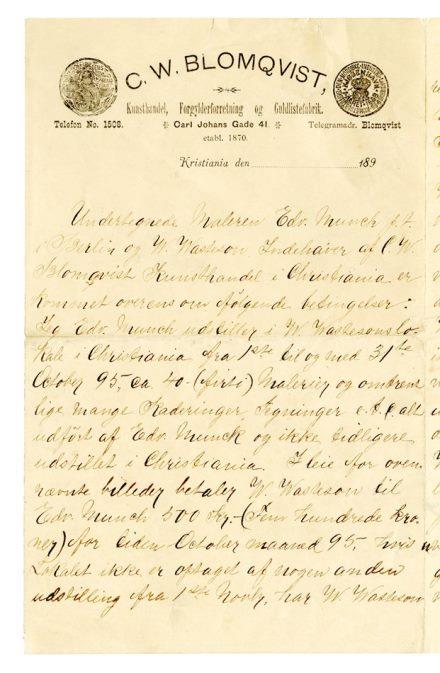 C. W. BLOMQVIST,
Kunsthandel, Forgylderforretning og Guldlistefabrik.
Telefon No. 1508. Carl Johans Gade 41. Telegramadr. Blomqvist
etabl. 1870.
Kristiania den 189
Undertegnede Maleren Edv. Munch p.t.
i Berlin og W. Wasteson Indehaver af C. W.
Blomqvist Kunsthandel i Christiania er
kommet overens om følgende betingelser:
Jeg Edv. Munch udstiller i W. Wastesons lo-
kale i Christiania fra 1ste til og med 31te
October 95, ca 40 (firti) Malerier og omtrent
lige mange Raderinger, Tegninger alt
udført af Edv. Munck og ikke tidligere
udstillet i Christiania. I leie for oven
nævnte billeder betaler W. Wasteson til
Edv. Munch 500 Kr. (Fem hundrede kro-
ner) for tiden October maaned 95, hvis
Lokalet ikke er optaget af nogen anden
udstilling fra 1ste Novbr, har W. Wasteson